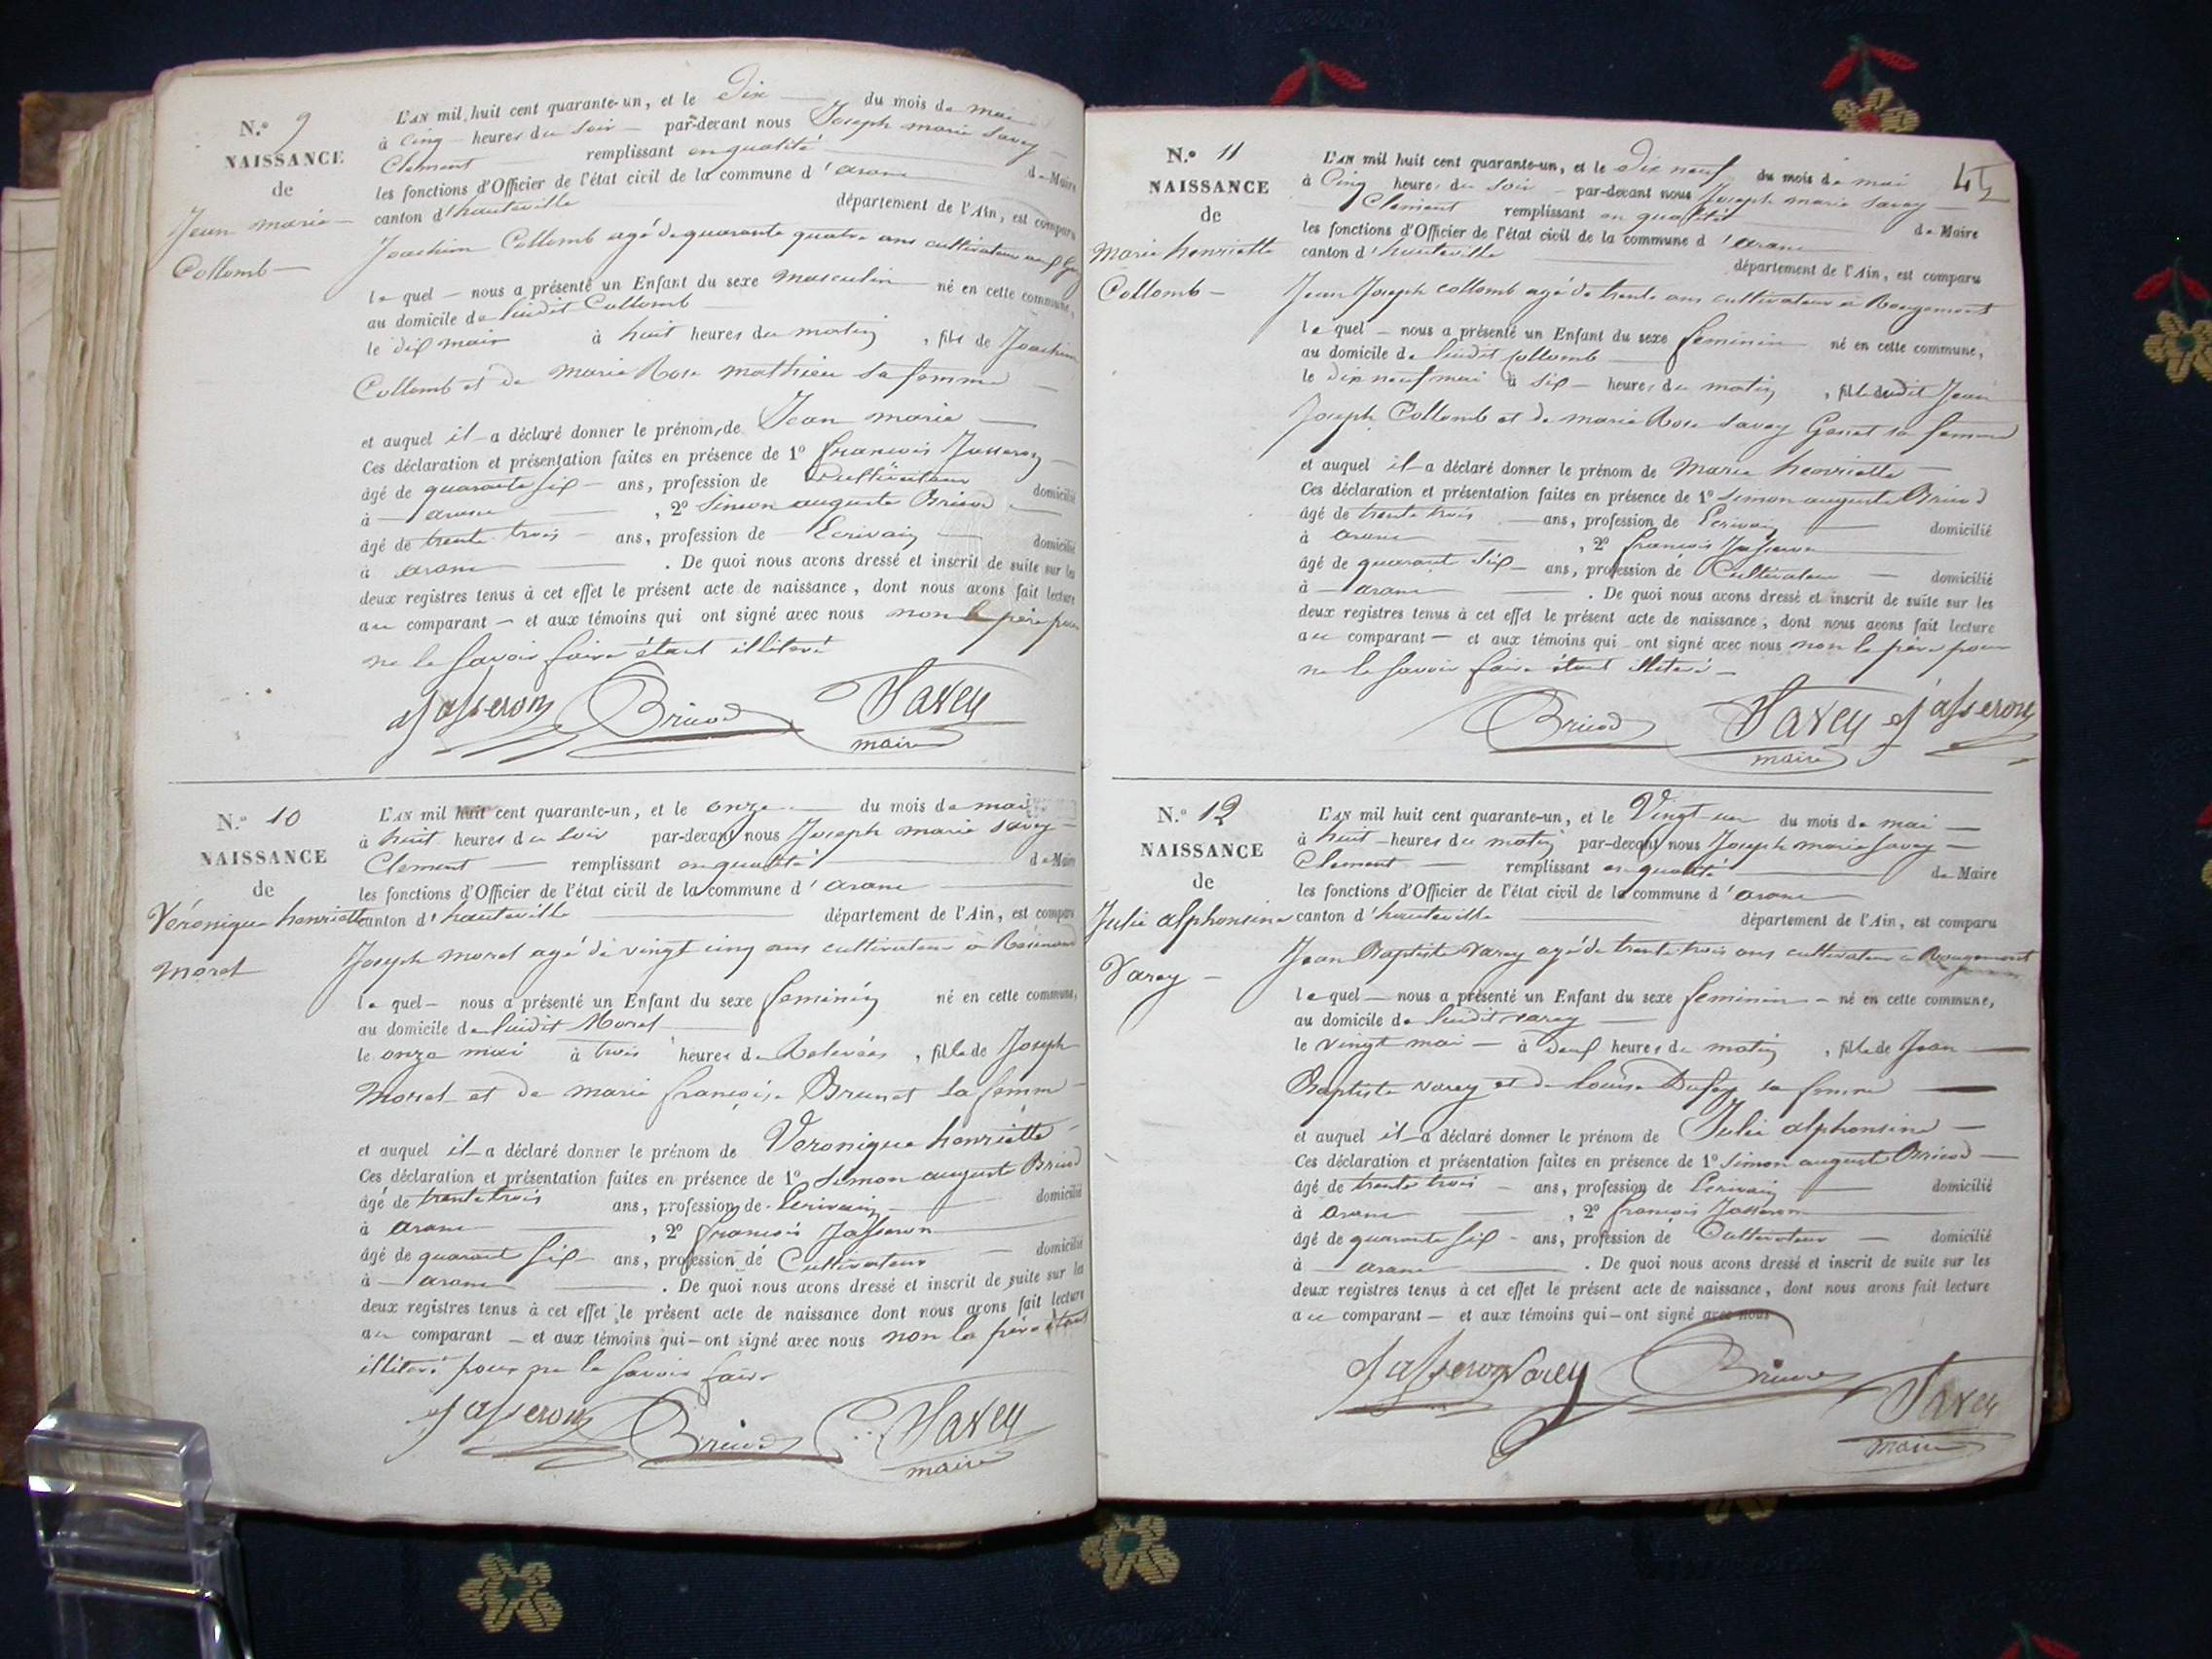 N.o 9
NAISSANCE
de
Jean marie
Collomb
L'AN mil huit cent quarante-un, et le Dix du mois de mai
à cinq heures du soir par-devant nous Joseph marie Savey
Clement remplissant en qualité de Maire
les fonctions d'Officier de l'état civil de la commune d'arane
canton d'hauteville département de l'Ain, est comparu
Joachim Collomb agé de quarante quatre ans cultivateur
le quel nous a présenté un Enfant du sexe masculin né en cette commune,
au domicile de ludit Collomb
le dix mai à huit heures du matin, fils de Joachim
Collomb et de marie Rose mathieu sa femme
et auquel il a déclaré donner le prénom de Jean marie
Ces déclaration et présentation faites en présence de 1o francois Jasseron
âgé de quarante six ans, profession de Cultivateur domicilié
à arane, 2o Simon auguste Briod
âgé de trente trois ans, profession de Ecrivain domicilié
à arane. De quoi nous avons dressé et inscrit de suite sur les
deux registres tenus à cet effet le présent acte de naissance, dont nous avons fait lecture
au comparant et aux témoins qui ont signé avec nous non le père pour
ne le savoir faire étant illiteré
Jasseron Briod Savey
maire
N.o 10
NAISSANCE
de
Véronique henriette
Morel
L'AN mil huit cent quarante-un, et le onze du mois de mai
à huit heures du soir par-devant nous Joseph marie Savey
Clement remplissant en qualité de Maire
les fonctions d'Officier de l'état civil de la commune d'arane
canton d'hauteville département de l'Ain, est comparu
Joseph morel agé de vingt cinq ans cultivateur à
le quel nous a présenté un Enfant du sexe feminin né en cette commune,
au domicile de ludit Morel
le onze mai à trois heures de Relevées, fille de Joseph
Morel et de marie françoise Brunet sa femme
et auquel il a déclaré donner le prénom de Veronique henriette
Ces déclaration et présentation faites en présence de 1o Simon auguste Briod
âgé de trente trois ans, profession de Ecrivain domicilié
à arane, 2o francois Jasseron
âgé de quarante six ans, profession de Cultivateur domicilié
à arane. De quoi nous avons dressé et inscrit de suite sur les
deux registres tenus à cet effet le présent acte de naissance dont nous avons fait lecture
au comparant et aux témoins qui ont signé avec nous non le père étant
illiteré pour ne le savoir faire
Jasseron Briod Savey
maire
45
N.o 11
NAISSANCE
de
Marie henriette
Collomb
L'AN mil huit cent quarante-un, et le Dix neuf du mois de mai
à Cinq heures du soir par-devant nous Joseph marie Savey
Clement remplissant en qualité de Maire
les fonctions d'Officier de l'état civil de la commune d'arane
canton d'hauteville département de l'Ain, est comparu
Jean Joseph collomb agé de trente ans cultivateur à Rougemont
le quel nous a présenté un Enfant du sexe feminin né en cette commune,
au domicile de ludit Collomb
le dix neuf mai à six heures du matin, fille dudit Jean
Joseph Collomb et de marie Rose Savey Genet sa femme
et auquel il a déclaré donner le prénom de Marie henriette
Ces déclaration et présentation faites en présence de 1o Simon auguste Briod
âgé de trente trois ans, profession de Ecrivain domicilié
à arane, 2o francois Jasseron
âgé de quarante six ans, profession de Cultivateur domicilié
à arane. De quoi nous avons dressé et inscrit de suite sur les
deux registres tenus à cet effet le présent acte de naissance, dont nous avons fait lecture
au comparant et aux témoins qui ont signé avec nous non le père pour
ne le savoir faire étant illiteré
Briod Savey Jasseron
maire
N.o 12
NAISSANCE
de
Julie alphonsine
Varey
L'AN mil huit cent quarante-un, et le Vingt un du mois de mai
à huit heures du matin par-devant nous Joseph marie Savey
Clement remplissant en qualité de Maire
les fonctions d'Officier de l'état civil de la commune d'arane
canton d'hauteville département de l'Ain, est comparu
Jean Baptiste Varey agé de trente trois ans cultivateur à Rougemont
le quel nous a présenté un Enfant du sexe feminin né en cette commune,
au domicile de ludit varey
le vingt mai à deux heures du matin, fille de Jean
Baptiste varey et de louise Dufay sa femme
et auquel il a déclaré donner le prénom de Julie alphonsine
Ces déclaration et présentation faites en présence de 1o Simon auguste Briod
âgé de trente trois ans, profession de Ecrivain domicilié
à arane, 2o francois Jasseron
âgé de quarante six ans, profession de Cultivateur domicilié
à arane. De quoi nous avons dressé et inscrit de suite sur les
deux registres tenus à cet effet le présent acte de naissance, dont nous avons fait lecture
au comparant et aux témoins qui ont signé avec nous
Jasseron Varey Briod Savey
maire